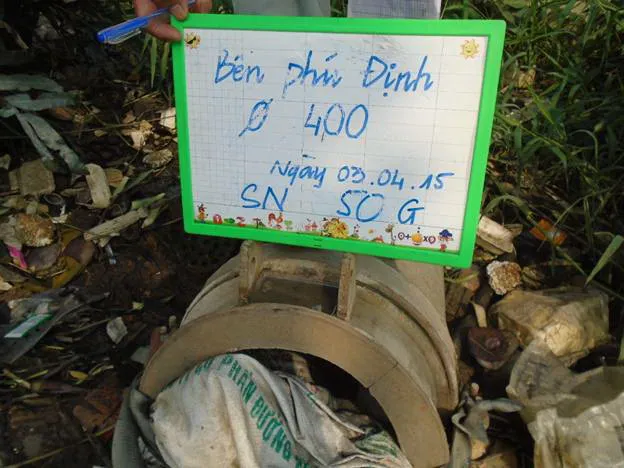 Bến phú Định
Ø 400
Ngày 03.04.15
SN 50 G
PHÂN ĐƯỜNG